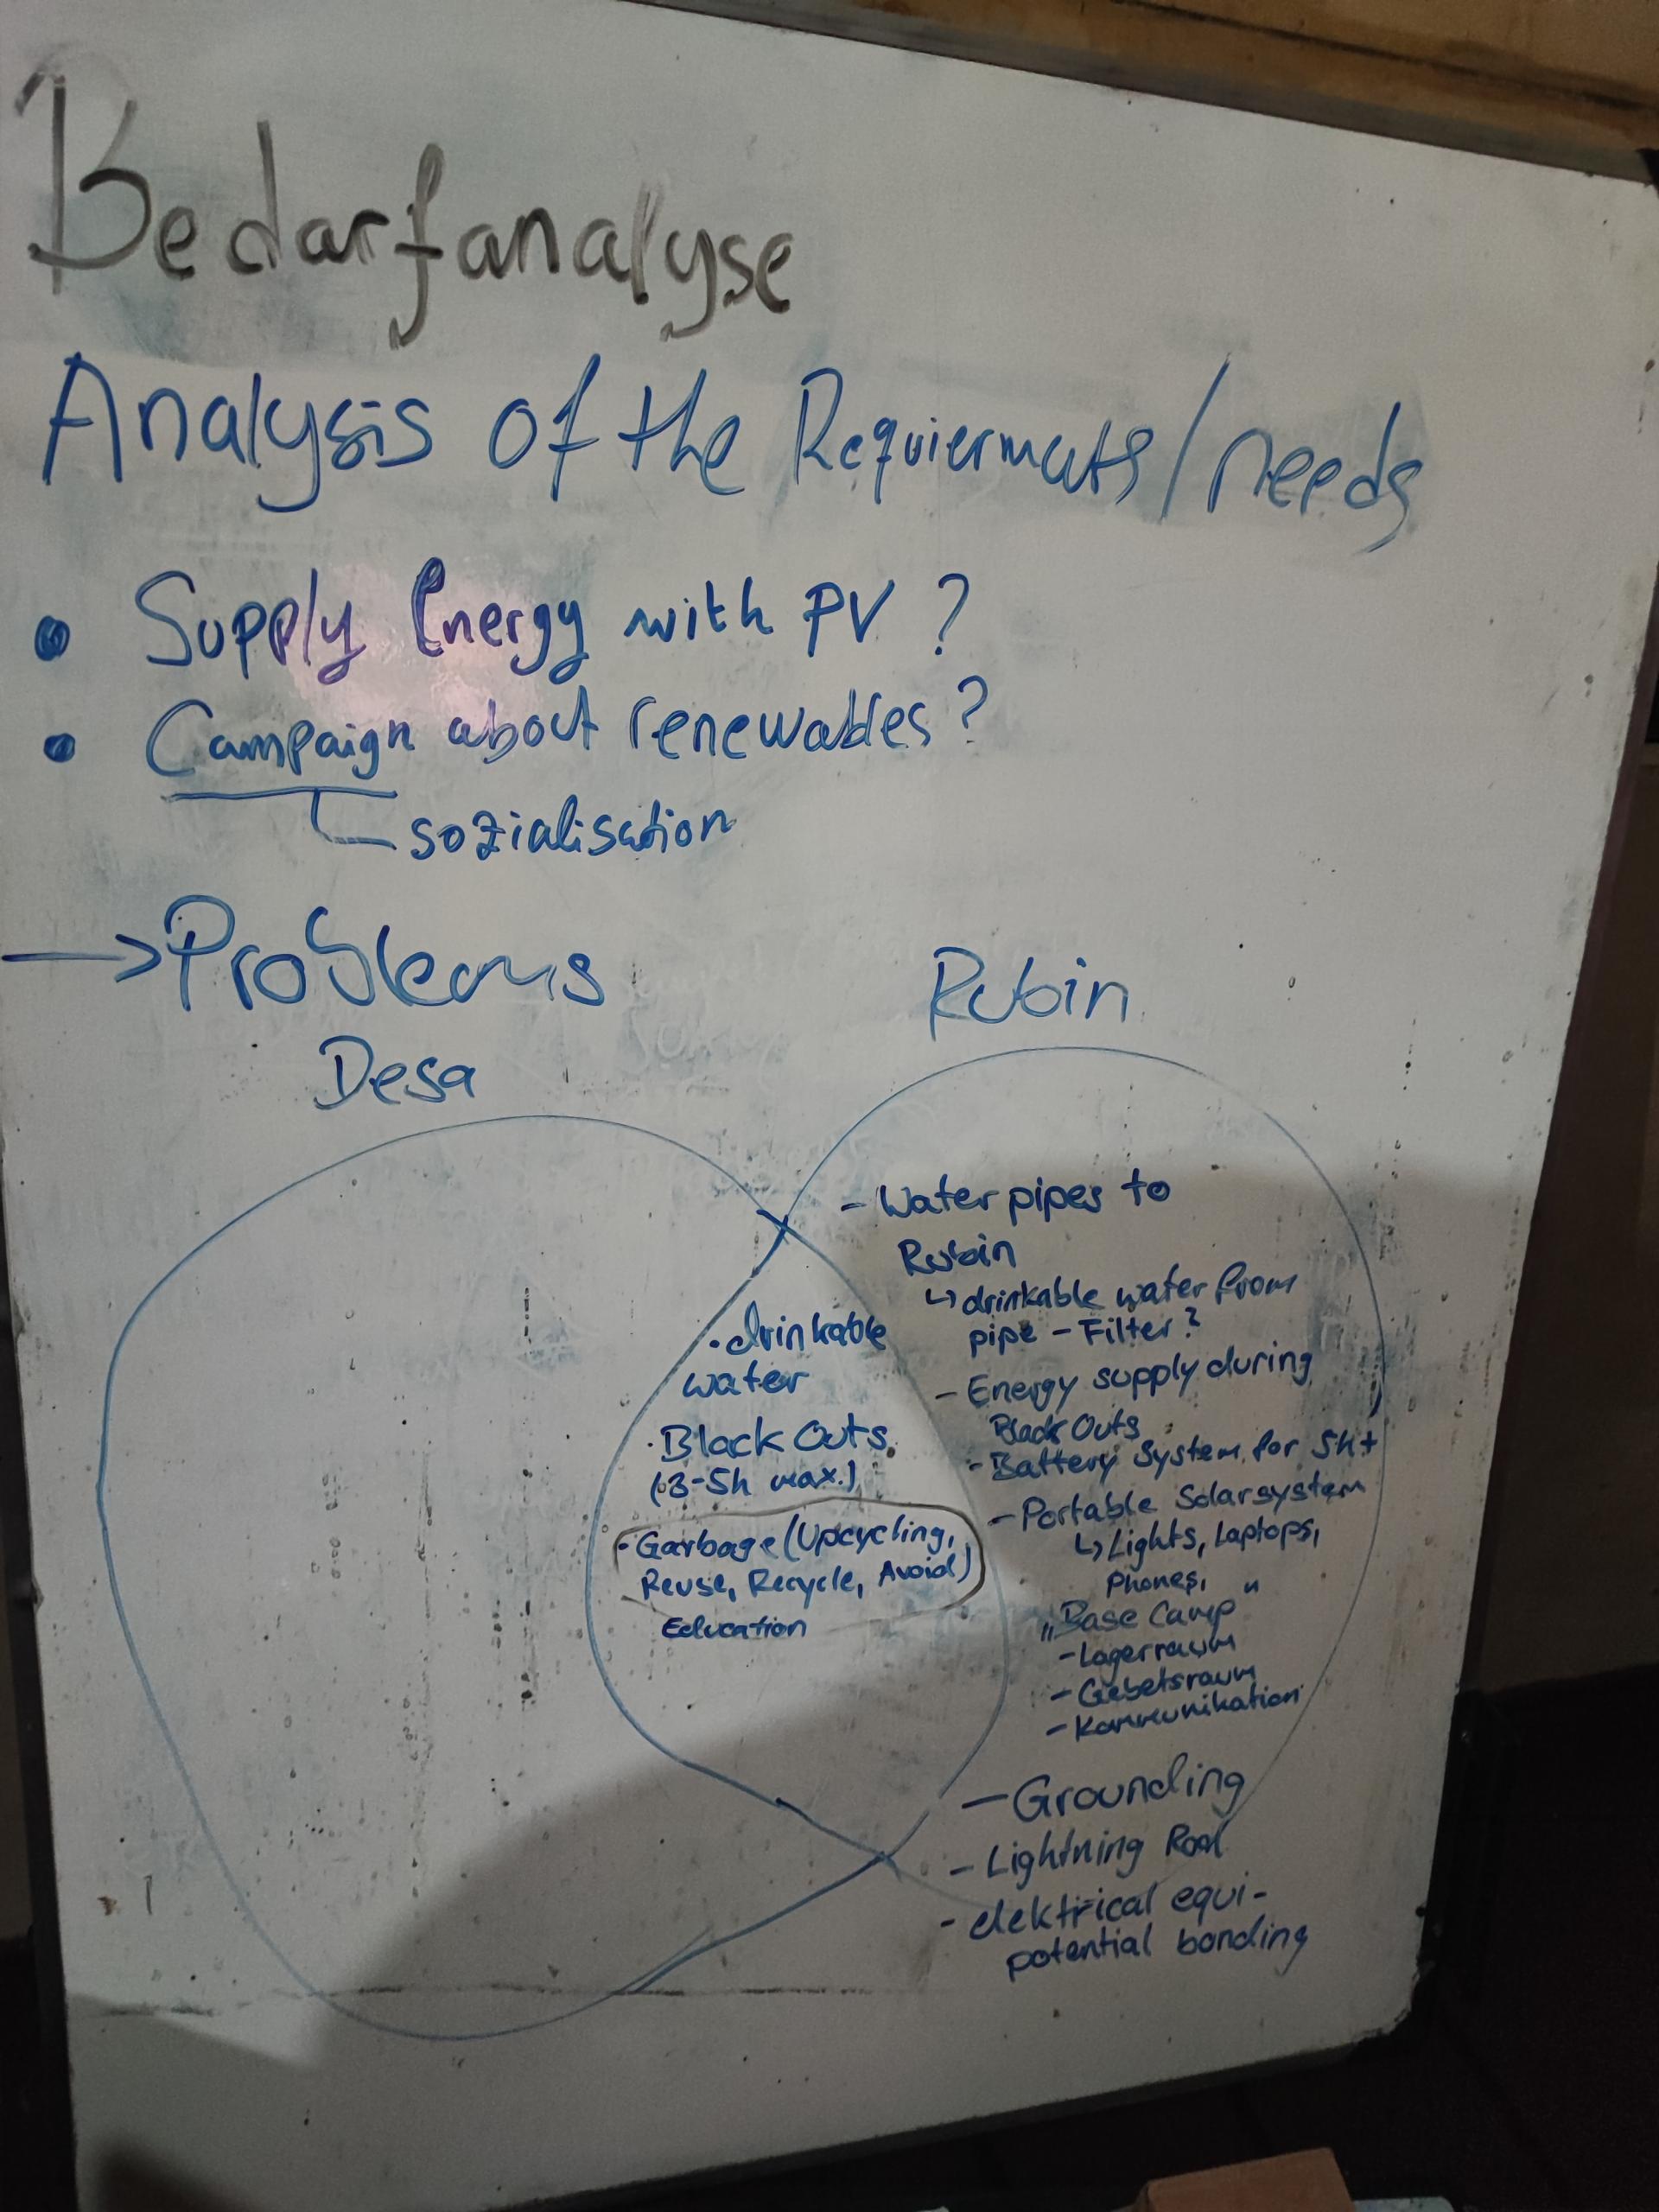 Bedarfanalyse
Analysis of the Requierments/needs
• Supply Energy with PV ?
• Campaign about renewables ?
sozialisation
→ Problems
Desa
Rubin
• drinkable
water
• Black Outs
(3-5h max.)
• Garbage (Upcycling,
Reuse, Recycle, Avoid)
Education
- Water pipes to
Rubin
↳ drinkable water from
pipe - Filter ?
- Energy supply during
Black Outs
- Battery System for 5h+
- Portable Solarsystem
↳ Lights, Laptops,
Phones,
„Base Camp"
- Lagerraum
- Gebetsraum
- Kommunikation
- Grounding
- Lightning Rod
- elektrical equi-
potential bonding